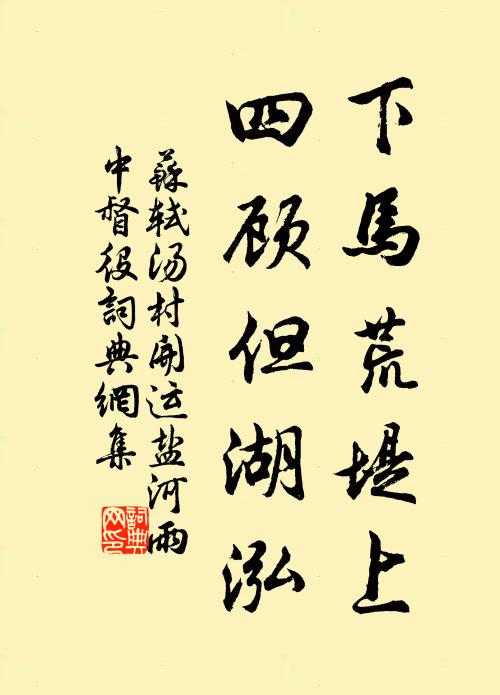 下馬荒堤上
四顾但湖泓
蘇軾汤村開运盐河雨
中督役詞典網集
詞典网印